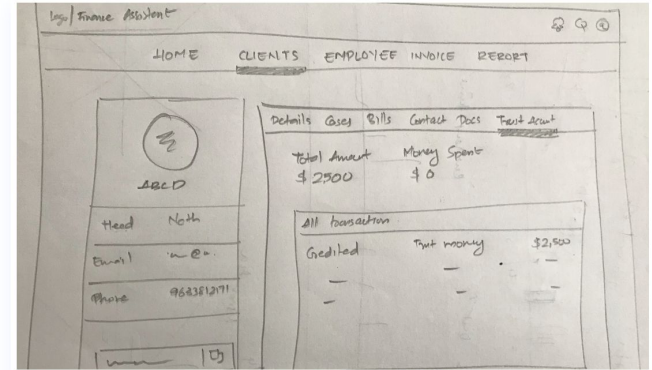 Logo / Finance Assistent
HOME CLIENTS EMPLOYEE INVOICE REPORT
ABCD
Head Noth
Email
Phone 9633812171
Details Cases Bills Contact Docs Trust Acount
Total Amount Money Spent
$ 2500 $ 0
All transaction
Credited Trust money $2,500